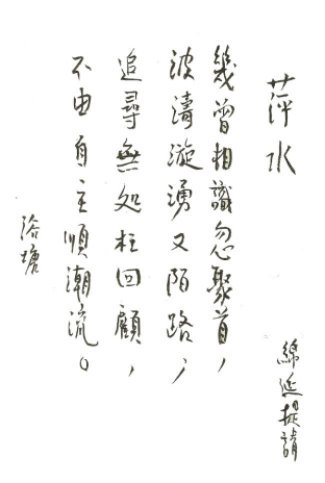 萍水
幾曾相識忽聚首，
波濤漩湧又陌路；
追尋無处枉回顧，
不由自主順潮流。
浴塘
綿延提請